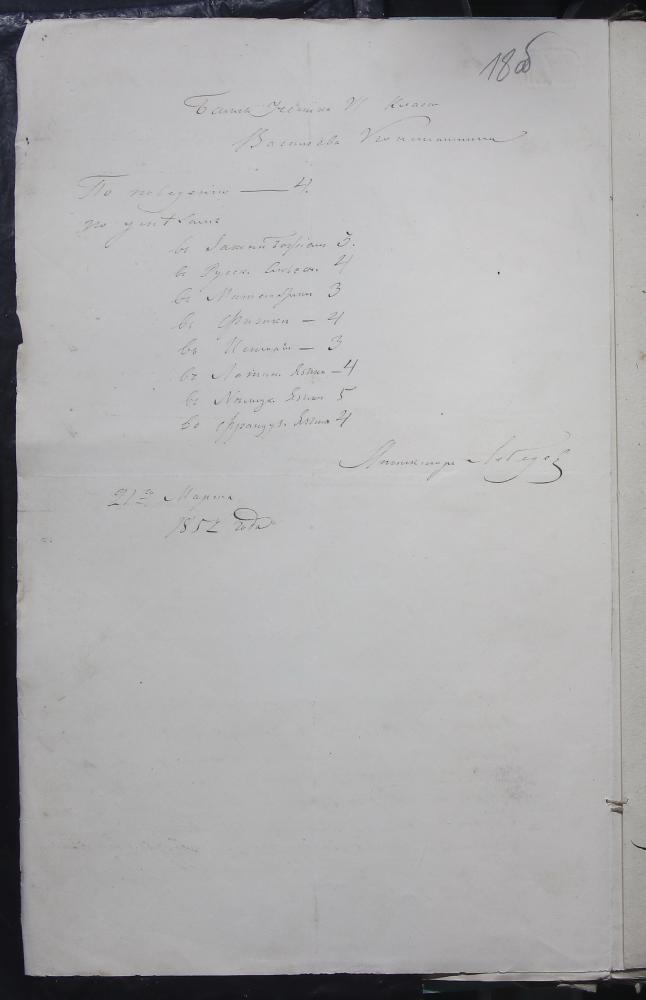 18об
Баллы Ученика VI класса
Василова Константина
По поведению — 4.
по успѣхамъ
въ Законѣ Божіемъ 3.
въ Русск. Словесн. 4
въ Математикѣ 3
въ Физикѣ — 4
въ Исторіи — 3
въ Латин. языкѣ — 4
въ Нѣмецк. языкѣ 5
во Француз. языкѣ 4
Инспекторъ Лебедев
21го Марта
1852 года